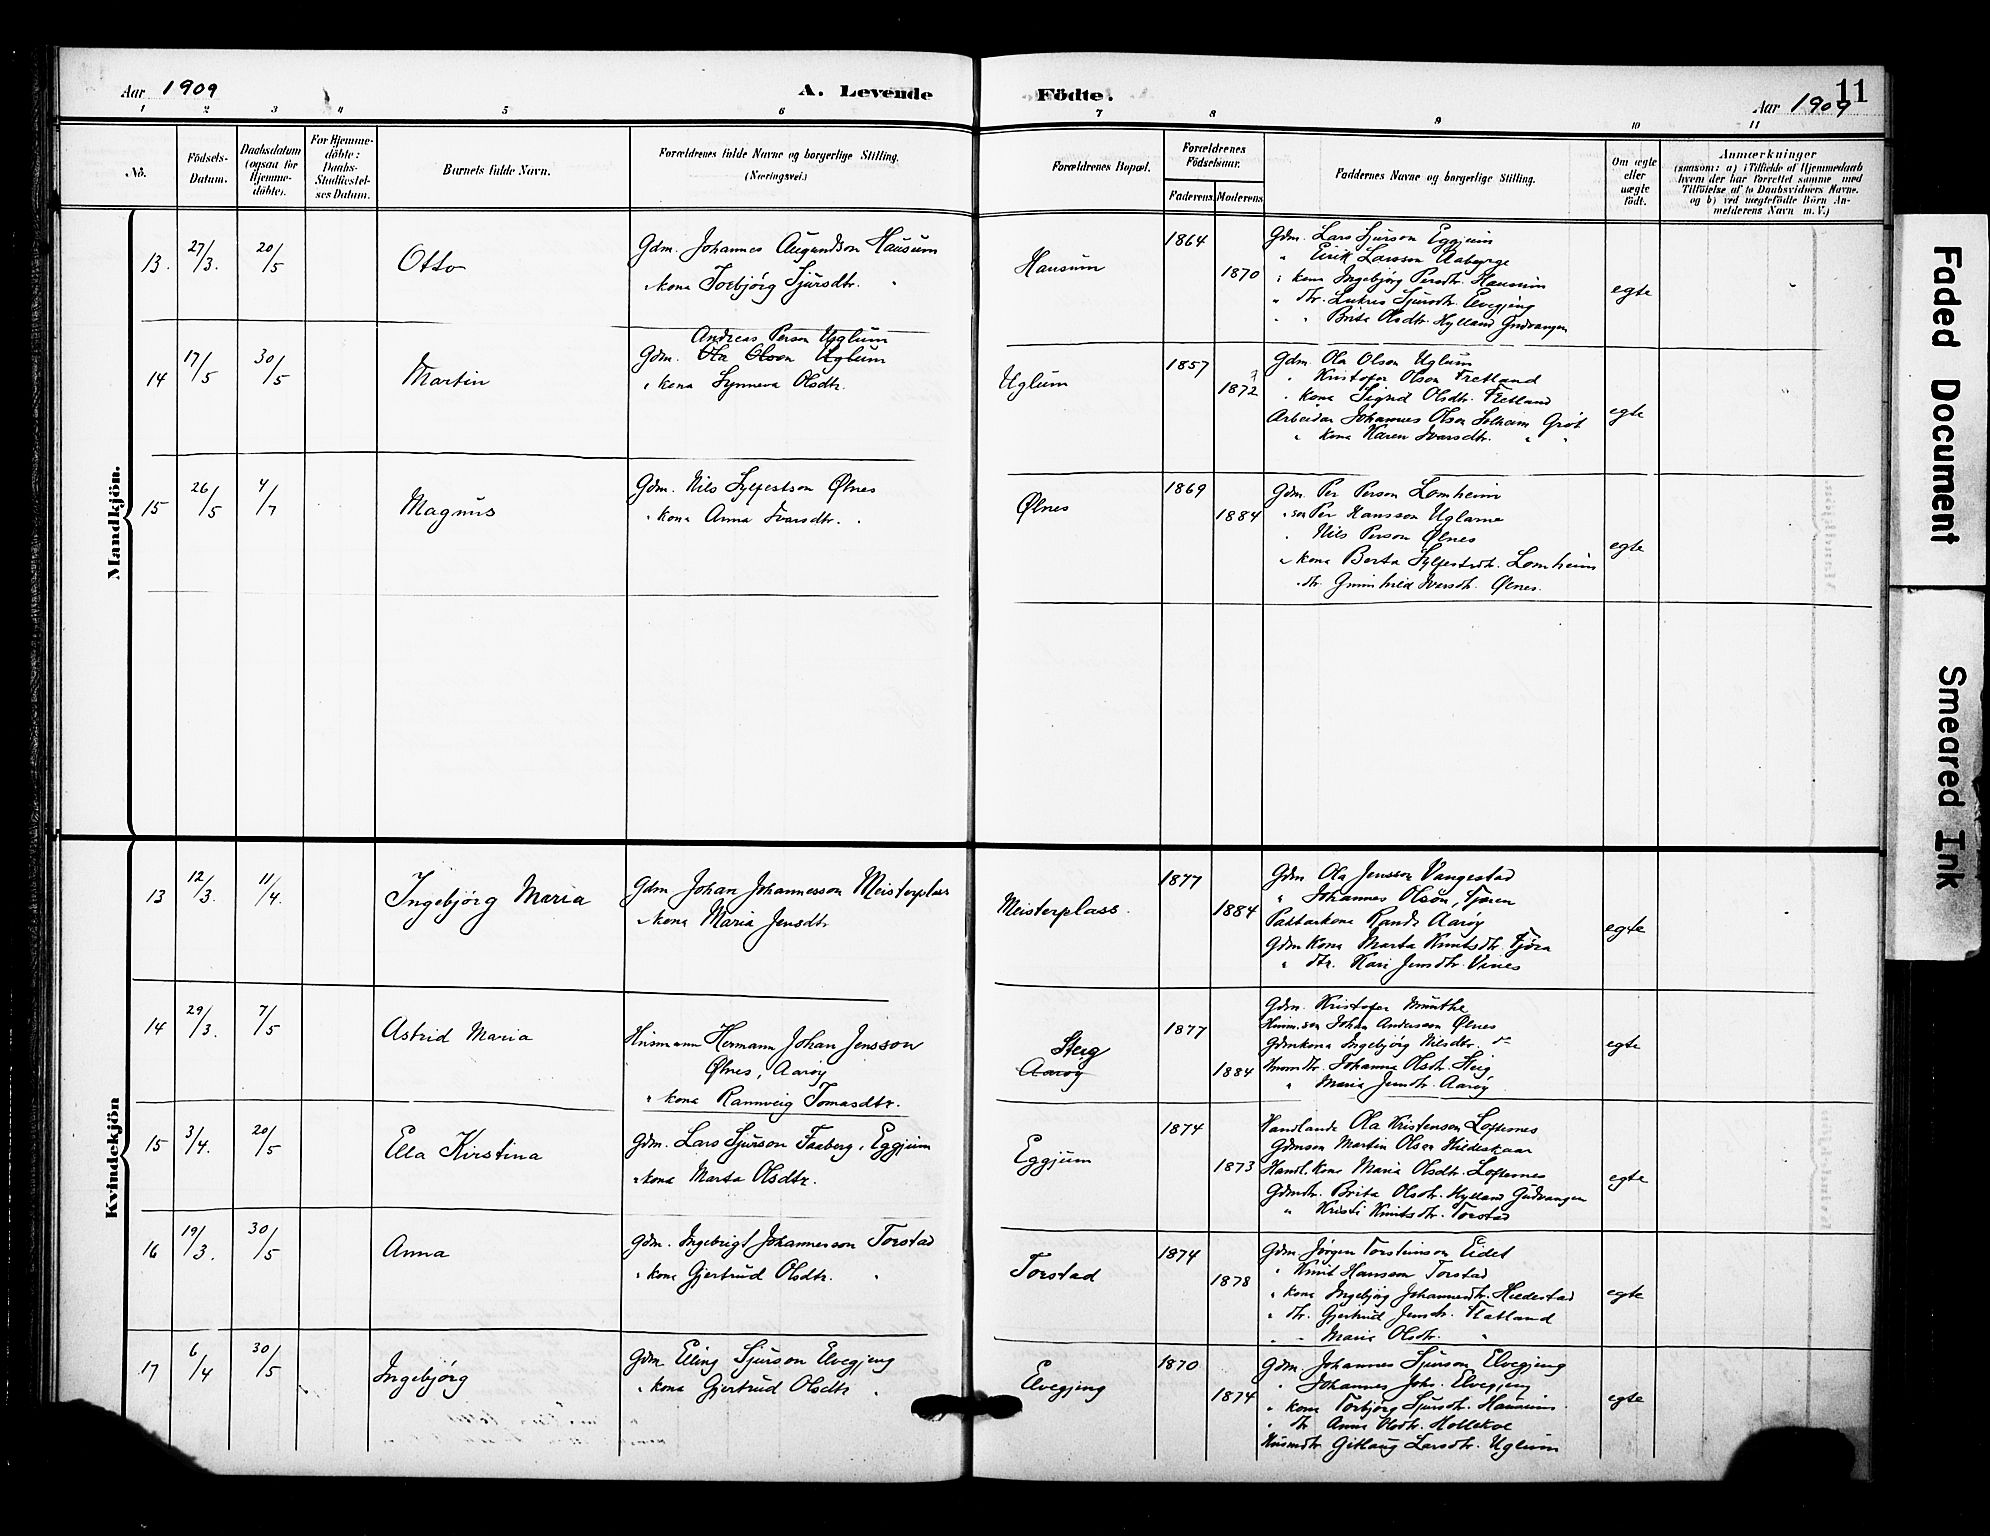 Aar 1909
A. Levende Födte.
11
Aar 1909
1 2 3 4 5 6 7 8 9 10 11
No.
Födsels-Datum.
Daabsdatum (ogsaa for Hjemmedöbte).
For Hjemmedöbte: Daabs-Stadfæstelses Datum.
Barnets fulde Navn.
Forældrenes fulde Navne og borgerlige Stilling. (Næringsvei.)
Forældrenes Bopæl.
Forældrenes Födselsaar.
Faderens Moderens
Faddernes Navne og borgerlige Stilling.
Om ægte eller uægte födt.
Anmærkninger
(saasom: a) i Tilfælde af Hjemmedaab
hvem der har forrettet samme med
Tilföielse af to Daabsvidners Navne,
og b) ved uægtefödte Börn Anmelderens Navn m. V.)
Mandkjön.
13. 27/3. 20/5 Otto
Gdm. Johannes Augundson Hausum
" kona Torbjörg Sjursdtr. "
Hausum 1864 1870
Gdm. Lars Sjurson Eggjum
" Eirik Larsson Aaberge
" kona Ingebjörg Persdtr. Hausum
" dtr. Lukris Sjursdtr. Elvegjeng
" " Brita Olsdtr. Hylland Gudvangen
egte
14 17/5 30/5 Martin
Andreas Person Uglum
Gdm. Ola Olson Uglum
" kona Synneva Olsdtr.
Uglum 1857 1872
Gdm Ola Olson Uglum
" Kristofer Olson Fretland
" kona Sigrid Olsdtr. Fretland
Arbeidar Johannes Olson Solheim Grøt
" kona Karen Ivarsdtr. " "
egte
15 26/5 4/7 Magnus
Gdm. Nils Sylfestson Ølnes
" kona Anna Ivarsdtr. "
Ølnes 1869 1884
Gdm. Per Person Lomheim
" son Per Hansson Uglum
" Nils Person Ølnes
" kona Berta Sylfestsdtr. Lomheim
" dtr. Gunnhild Ivarsdtr. Ølnes.
egte
Kvindekjön
13 12/3. 11/4. Ingebjörg Maria
Gdm Johan Johannesson Meisterplass
" kona Maria Jensdtr
Meisterplass. 1877 1884
Gdm Ola Jensson Vangestad
" Johannes Olson, Fjæren
Pottarkona Randi Aarøy
Gdm kona Marta Knutsdtr. Fjøra
" dtr. Kari Jensdtr. Vines
egte
14 29/3. 7/5 Astrid Maria
Husmann Hermann Johan Jensson
Ølnes, Aarøy
" kona Rannveig Tomasdtr.
Steig
Aarøy
1877 1884
Gdm. Kristofer Munthe
Husm.son Johan Andersson Ølnes
Gdmkona Ingebjörg Nilsdtr.
Husmdtr. Johanna Olsdtr. Steig
" Maria Jensdtr. Aarøy
egte
15 3/4. 20/5 Ella Kirstina
Gdm. Lars Sjurson Faaberg, Eggjum
" kona Marta Olsdtr.
Eggjum 1874 1873
Handlande Ola Kristenson Loftesnes
Gdmson Martin Olson Hildeskaar
Handl. kona Maria Olsdtr. Loftesnes
Gdmdtr. Brita Olsdtr. Hylland Gudvangen
" Kristi Knutsdtr. Torstad
egte
16 19/3. 30/5 Anna
Gdm. Ingebrigt Johannesson Torstad
" kona Gjertrud Olsdtr. "
Torstad 1874 1878
Gdm Jørgen Torsteinson Eidet
" Knut Hansson Torstad
" kona Ingebjörg Johannesdtr. Hildestad
" dtr. Gjertrud Jensdtr. Flatland
" " Maria Olsdtr. "
egte
17 6/4 30/5 Ingebjörg
Gdm Elling Sjurson Elvegjeng
" kona Gjertrud Olsdtr "
Elvegjeng 1870 1874
Gdm. Johannes Sjurson Elvegjeng
" Johannes Johs. Elvegjeng
" kona Torbjörg Sjursdtr. Hausum
" dtr Anna Olsdtr.
Husmdtr Gitlaug Larsdtr. Uglum
egte
Faded Document
Smeared Ink